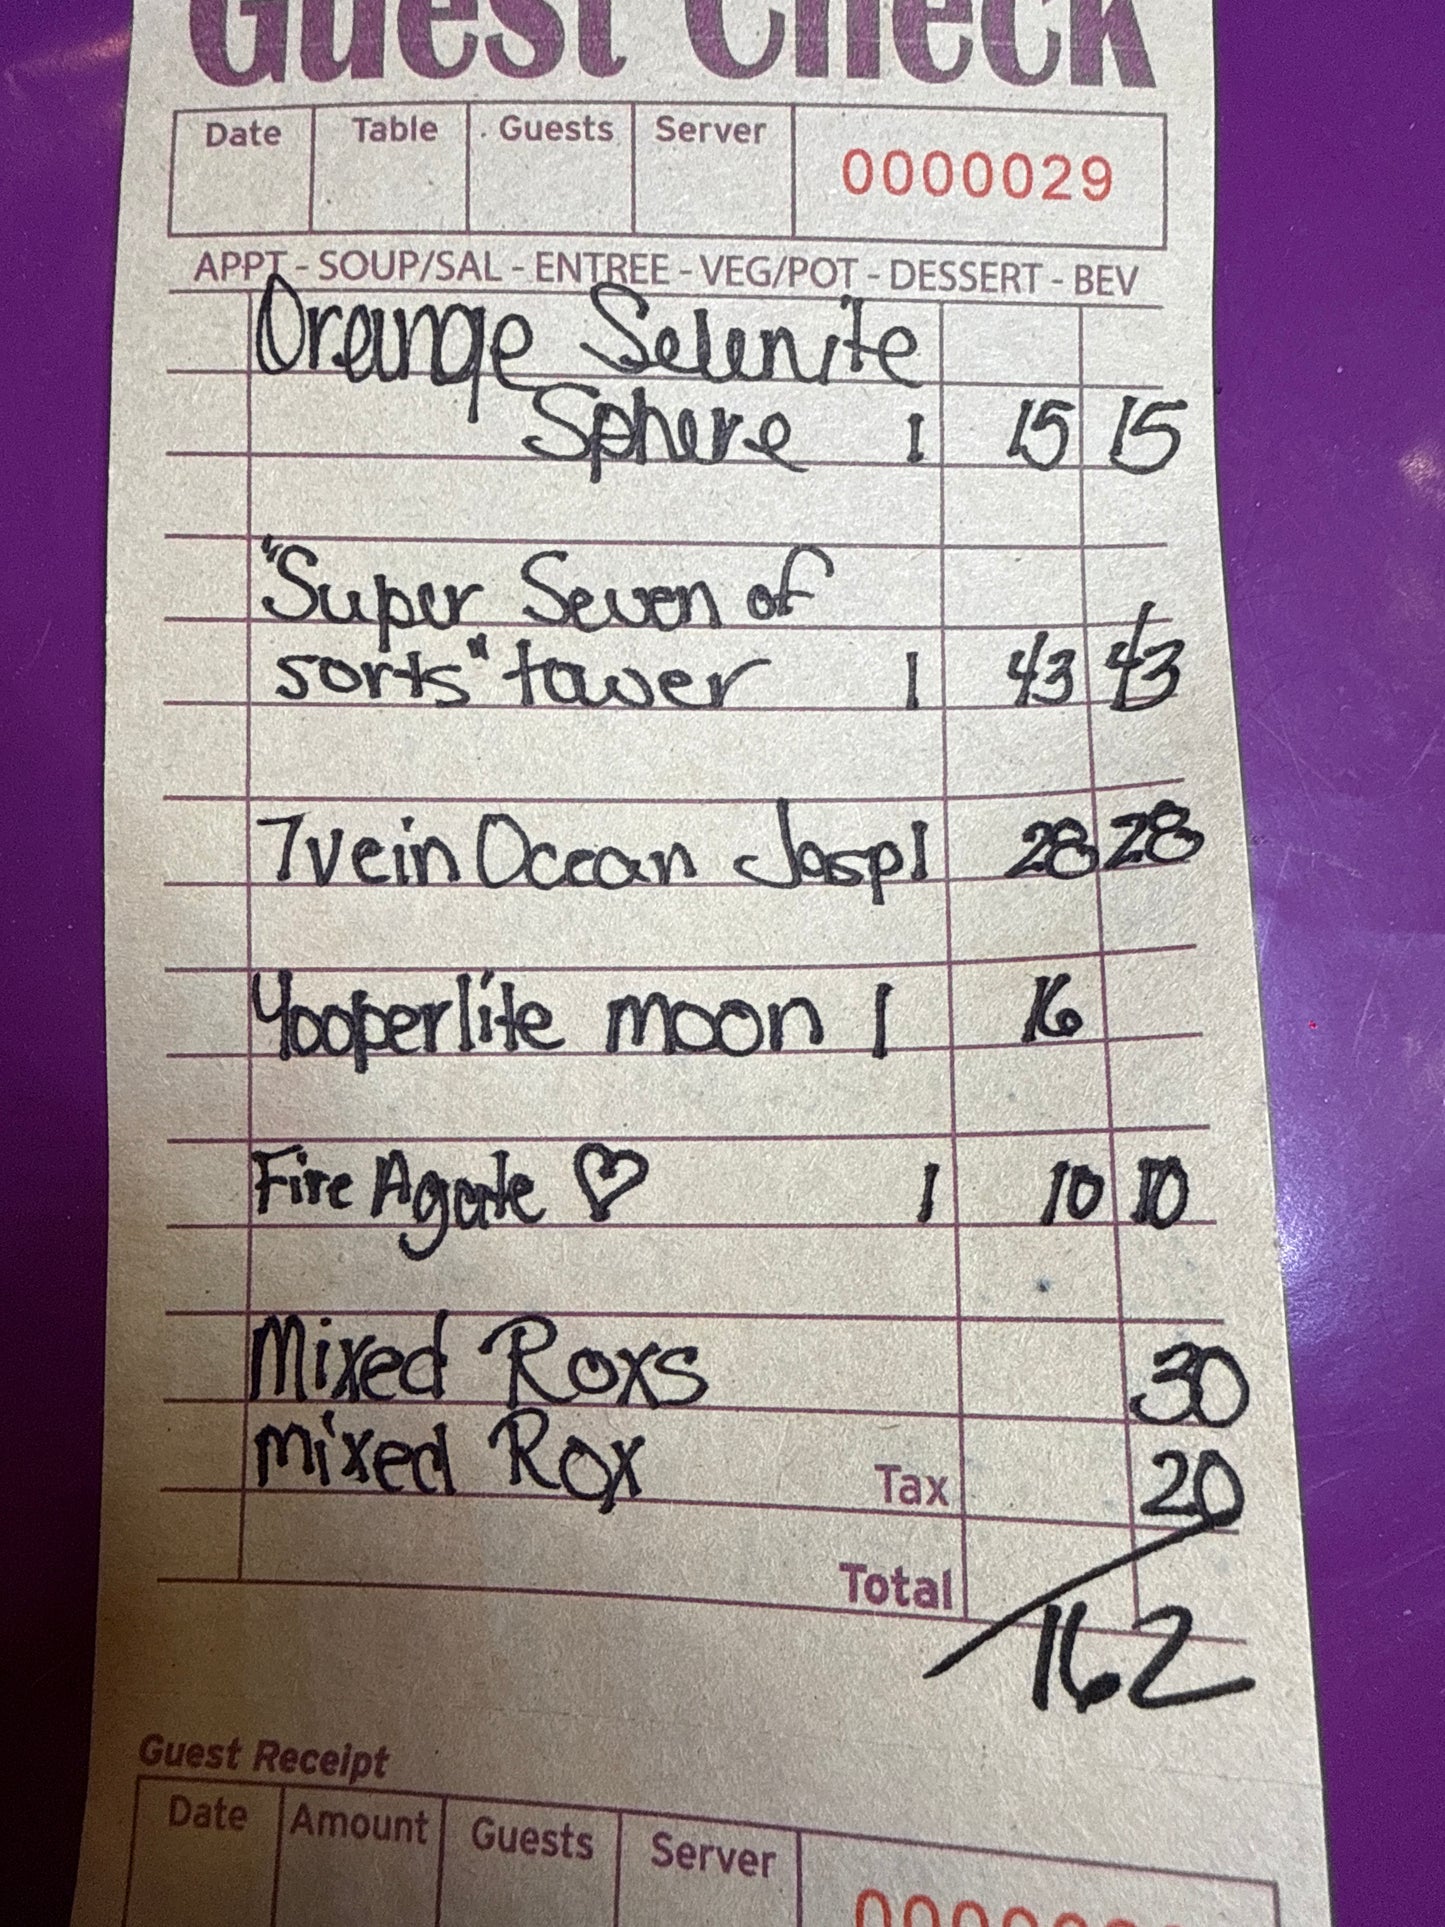 Guest Check
Date Table Guests Server 0000029
APPT - SOUP/SAL - ENTREE - VEG/POT - DESSERT - BEV
Orange Selenite
Sphere 1 15 15
"Super Seven of
sorts" tower 1 43 43
7vein Ocean Jasp 1 28 28
Yooperlite moon 1 16
Fire Agate ♡ 1 10 10
Mixed Roxs 30
mixed Rox Tax 20
Total 162
Guest Receipt
Date Amount Guests Server